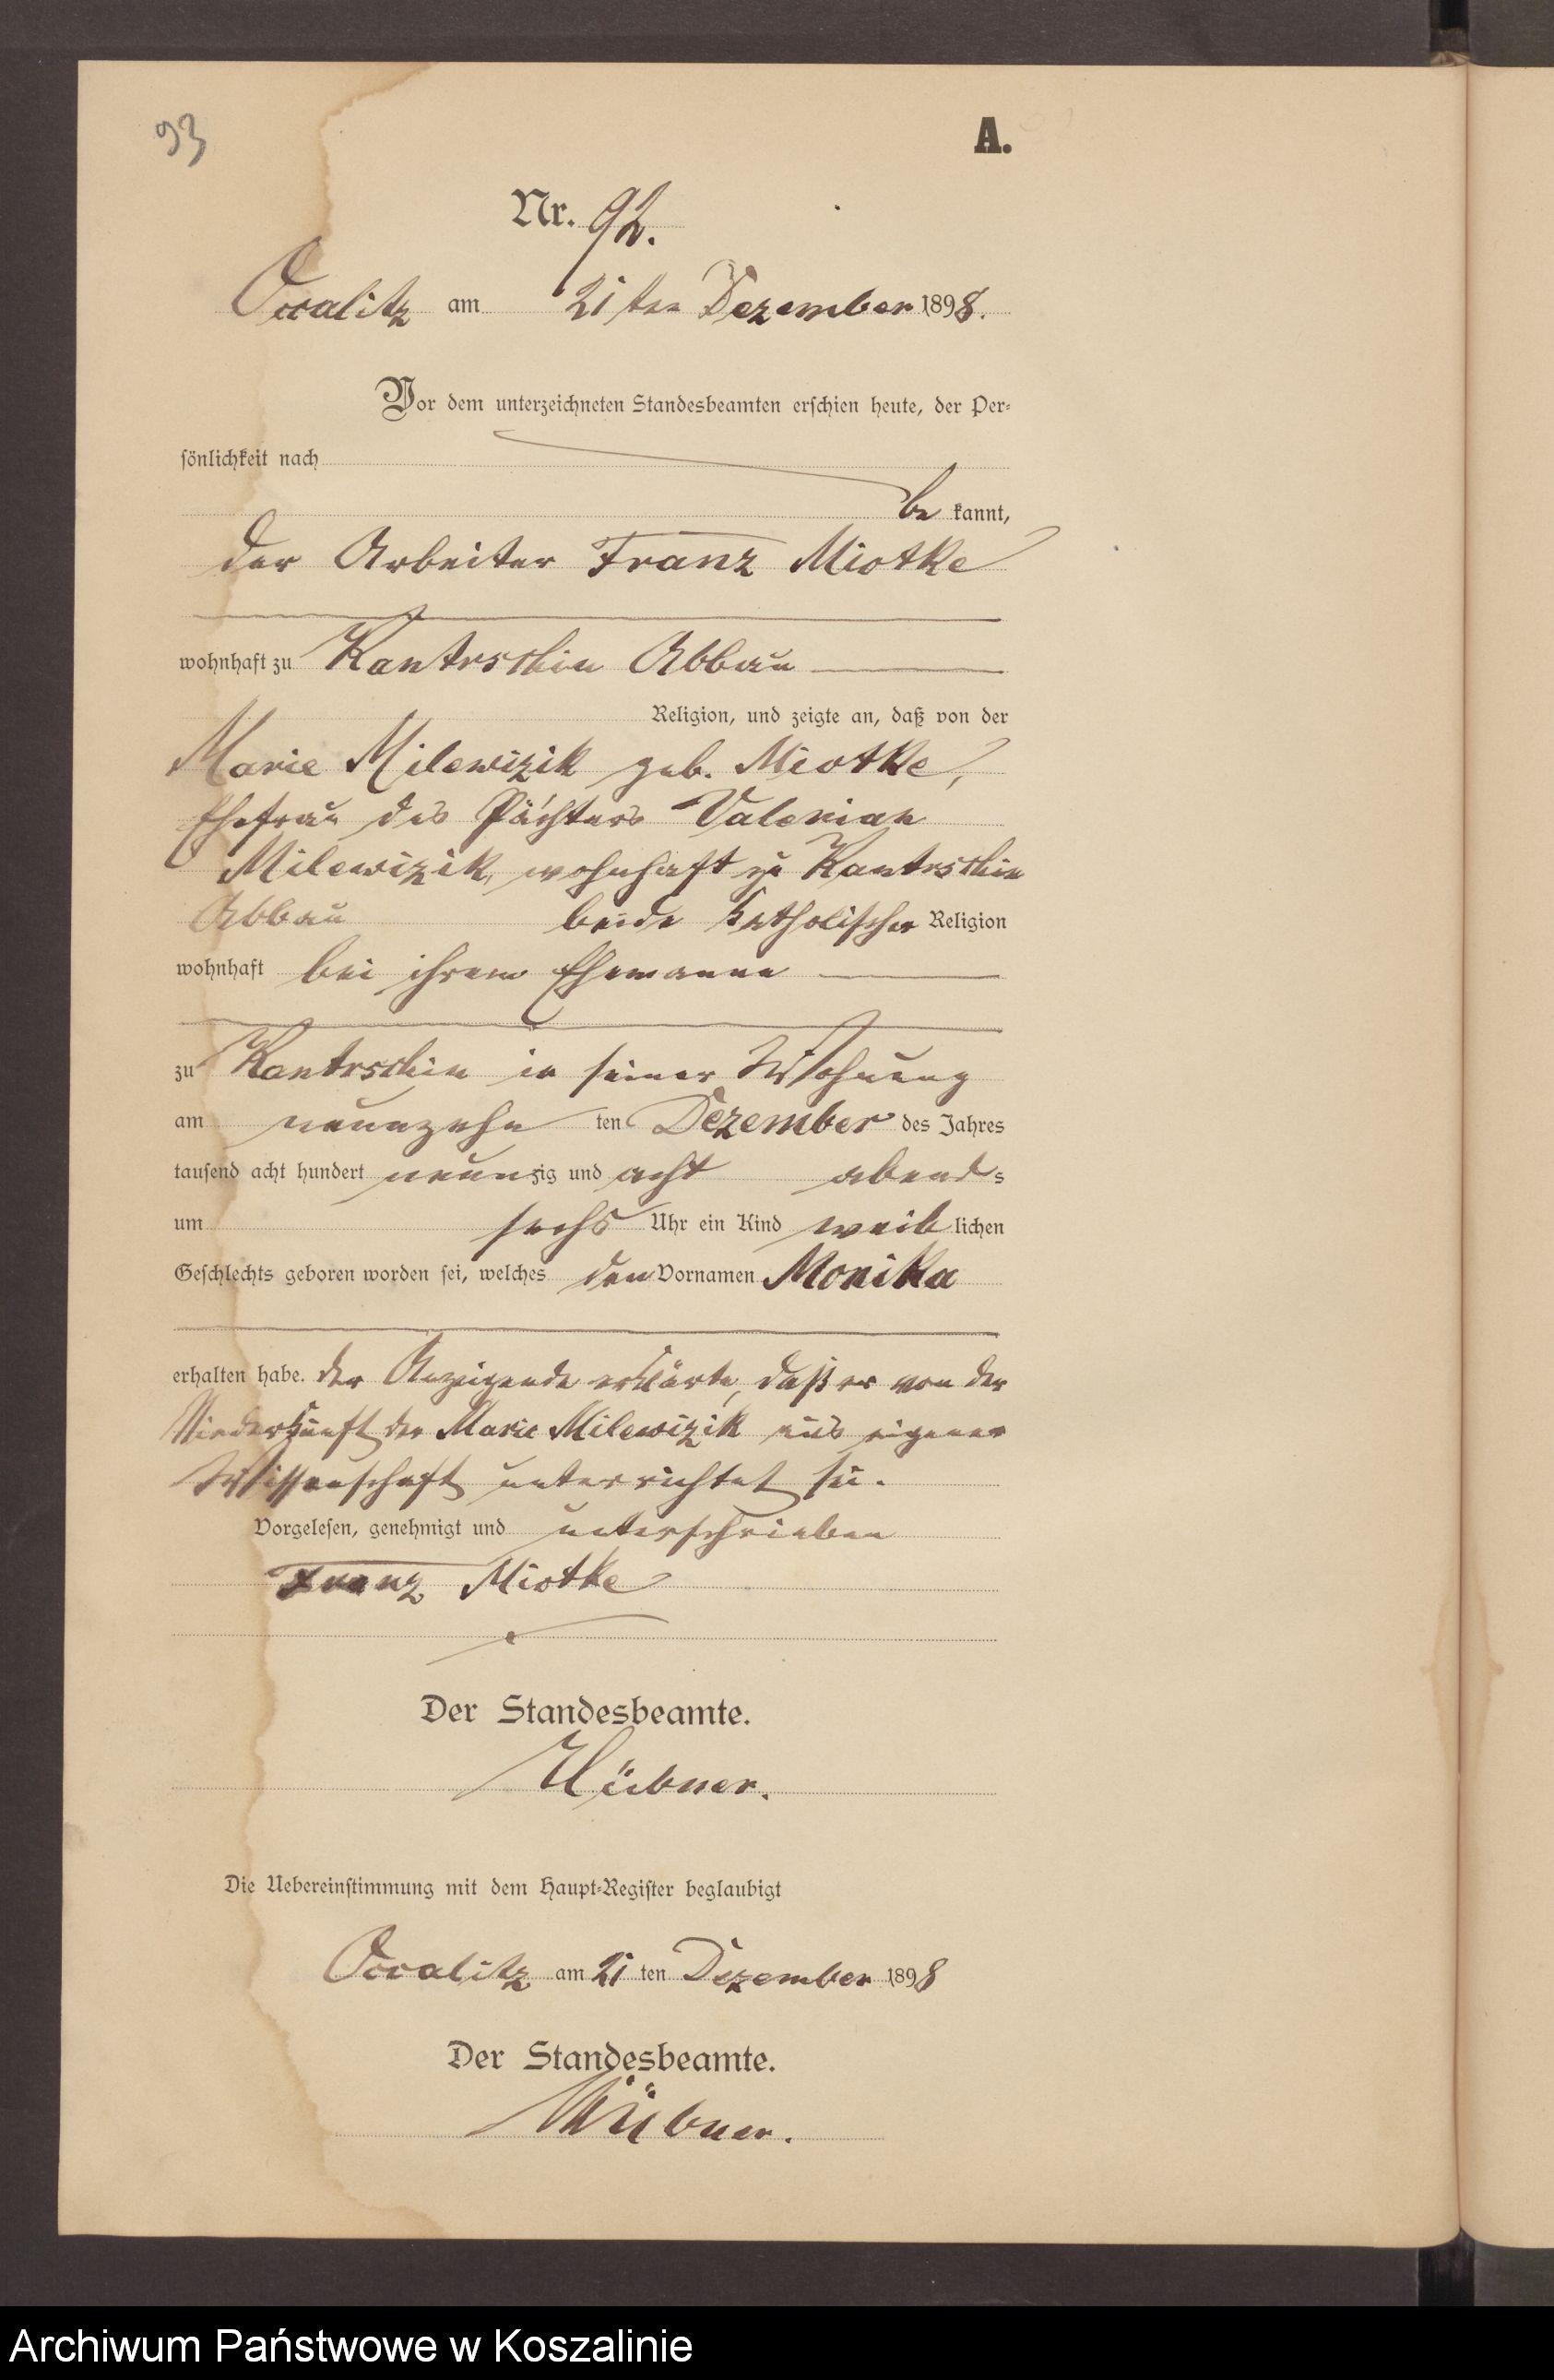 93
A.
Nr. 92.
Occalitz am 21 ten Dezember 1898.
Vor dem unterzeichneten Standesbeamten erschien heute, der Per-
sönlichkeit nach
be kannt,
der Arbeiter Franz Miotke
wohnhaft zu Kantrschin Abbau
Religion, und zeigte an, daß von der
Marie Milewizik geb. Miotke,
Ehefrau des Pächters Valerian
Milewizik, wohnhaft zu Kantrschin
Abbau beide katholischer Religion
wohnhaft bei ihrem Ehemanne
zu Kantrschin in seiner Wohnung
am neunzehn ten Dezember des Jahres
tausend acht hundert neunzig und acht abends
um sechs Uhr ein Kind weiblichen
Geschlechts geboren worden sei, welches den Vornamen Monika
erhalten habe. Der Anzeigende erklärte, daß er von der
Niederkunft der Marie Milewizik aus eigener
Wissenschaft unterrichtet sei.
Vorgelesen, genehmigt und unterschrieben
Franz Miotke
Der Standesbeamte.
Hübner.
Die Uebereinstimmung mit dem Haupt-Register beglaubigt
Occalitz am 21 ten Dezember 1898
Der Standesbeamte.
Hübner.
Archiwum Państwowe w Koszalinie